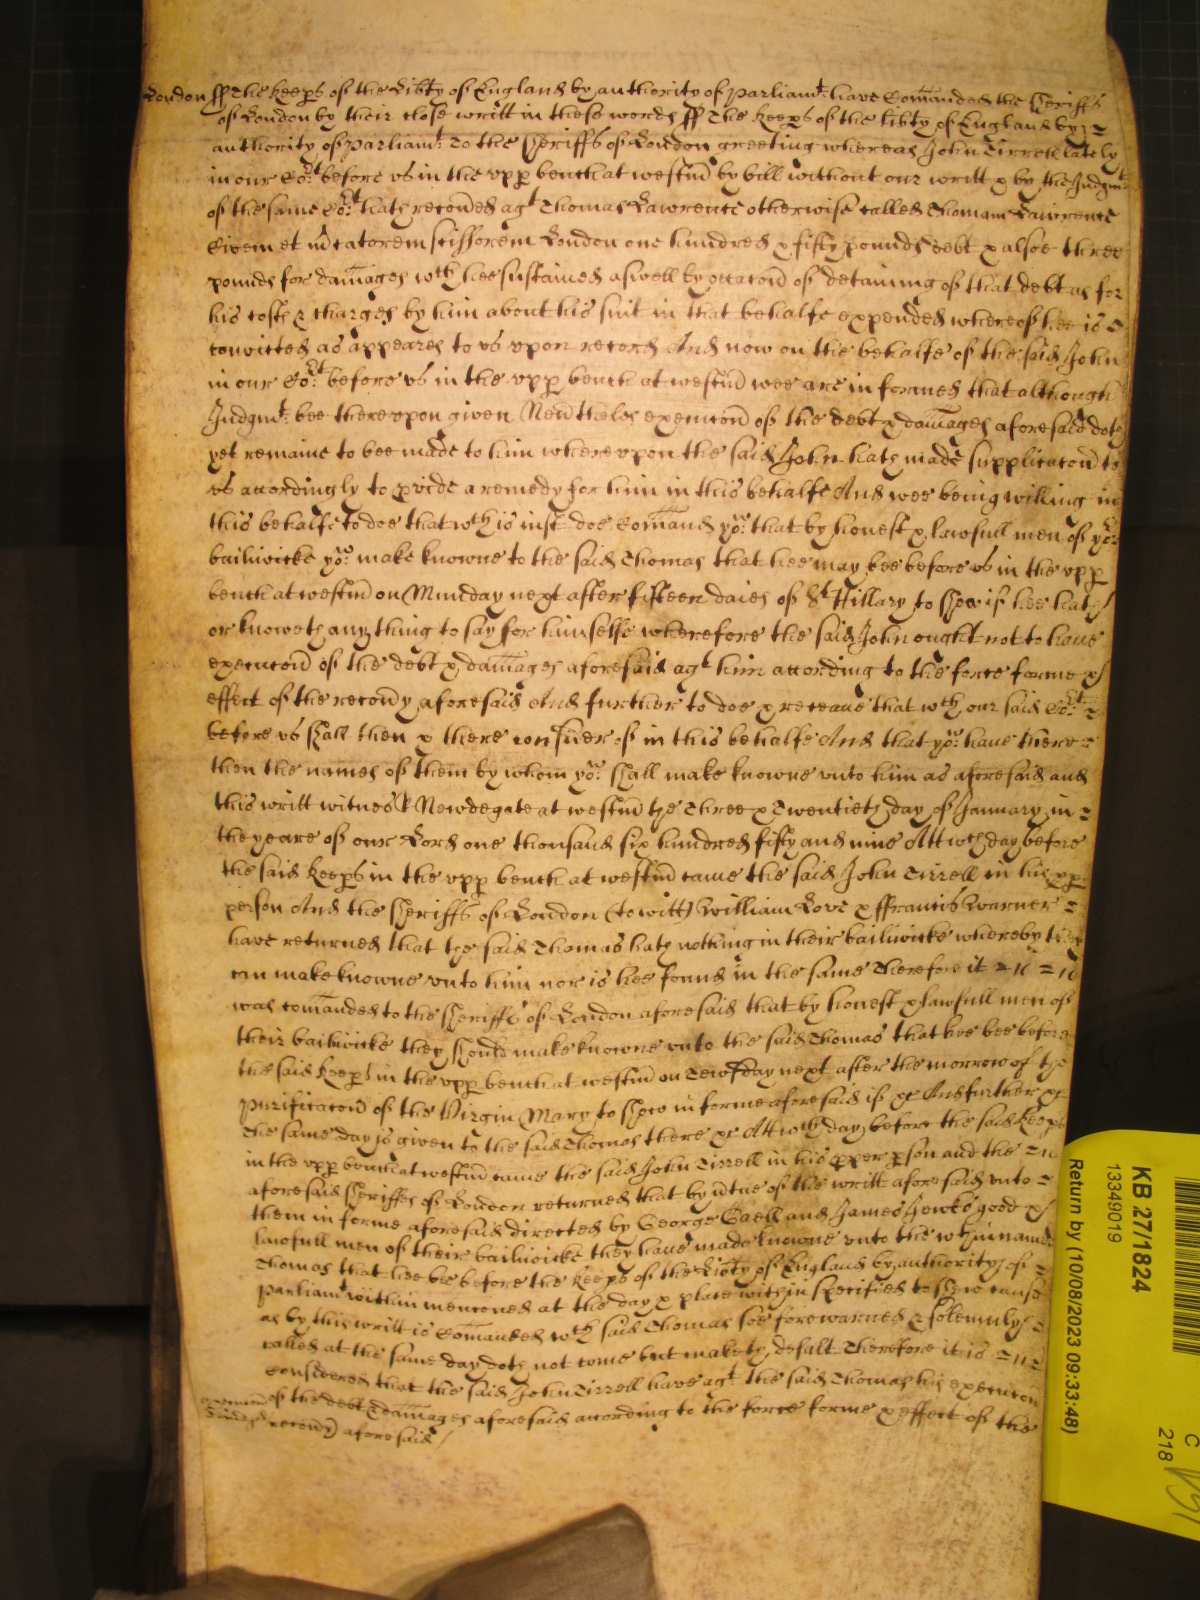 London ss The Keeps of the Libty of England by authority of Parliamt. have Comanded the Sheriffs
of London by their close writt in these words ss The Keeps of the libty of England by
authority of Parliamt. To the Sheriffs of London greeting whereas John Tirrell lately
in our Cort. before us in the upp bench at westm by bill without our writt & by the Judgmt.
of the same Cort. hath recoved agt Thomas Lawrence otherwise called Thomam Lawrence
Civem et mcatorem scissorem London one hundred & fifty pounds debt & alsoe three
pounds for damages wch hee sustained aswell by occacon of detaining of that debt as for
his costs & charges by him about his suit in that behalfe expended whereof hee is
convicted as appeares to us upon record And now on the behalfe of the said John
in our Cort. before us in the upp bench at westm wee are informed that although
Judgmt. bee thereupon given Nevtheles execucon of the debt & damages aforesaid doth
yet remaine to bee made to him whereupon the said John hath made supplicacon to
us accordingly to pvide a remedy for him in this behalfe And wee being willing in
this behalfe to doe that wch is iust doe Comand you. that by honest & lawfull men of yor.
bailiwicke you. make knowne to the said Thomas that hee may bee before us in the upp
bench at westm on Munday next after fifteen daies of St Hillary to shew if hee hath
or knoweth any thing to say for himselfe wherefore the said John ought not to have
execucon of the debt & damages aforesaid agt him according to the force forme &
effect of the recovy aforesaid And further to doe & receave that wch our said Cort.
before us shall then & there consider of in this behalfe And that you. have there
then the names of them by whom you. shall make knowne unto him as aforesaid and
this writt witnes R Newdegate at westm the Three & Twentieth day of January in
the yeare of our Lord one thousand six hundred fifty and nine Att wch day before
the said Keeps in the upp bench at westm came the said John Tirrell in his pp
person And the Sheriffs of London (to witt) William Love & ffrancis Warner
have returned that the said Thomas hath nothing in their bailiwicke whereby they
can make knowne unto him nor is hee found in the same Therefore it
was comanded to the Sheriffs of London aforesaid that by honest & lawfull men of
their bailiwicke they should make knowne unto the said Thomas that hee bee before
the said Keeps in the upp bench at westm on Tewsday next after the morrow of the
purificacon of the Virgin Mary to shew in forme aforesaid if &c And further &c
The same day is given to the said Thomas there &c Att wch day before the said Keeps
in the upp bench at westm came the said John Tirrell in his pper pson and the
aforesaid Sheriffes of London returned that by vtue of the writt aforesaid unto
them in forme aforesaid directed by George Caell and James Jewks good &
lawfull men of their bailiwicke they have made knowne unto the within named
Thomas that hee bee before the Keeps of the Libty of England by authority of
Parliamt within menconed at the day & place within specified to shew cause
as by this writt is Comanded wch said Thomas soe forewarned & solemnly
called at the same day doth not come but maketh default Therefore it is
considered that the said John Tirrell have agt. the said Thomas his execucon
of the debt & damages aforesaid according to the force forme & effect of the
recovy aforesaid
KB 27/1824
13349019
Return by (10/08/2023 09:33:48)
C
218